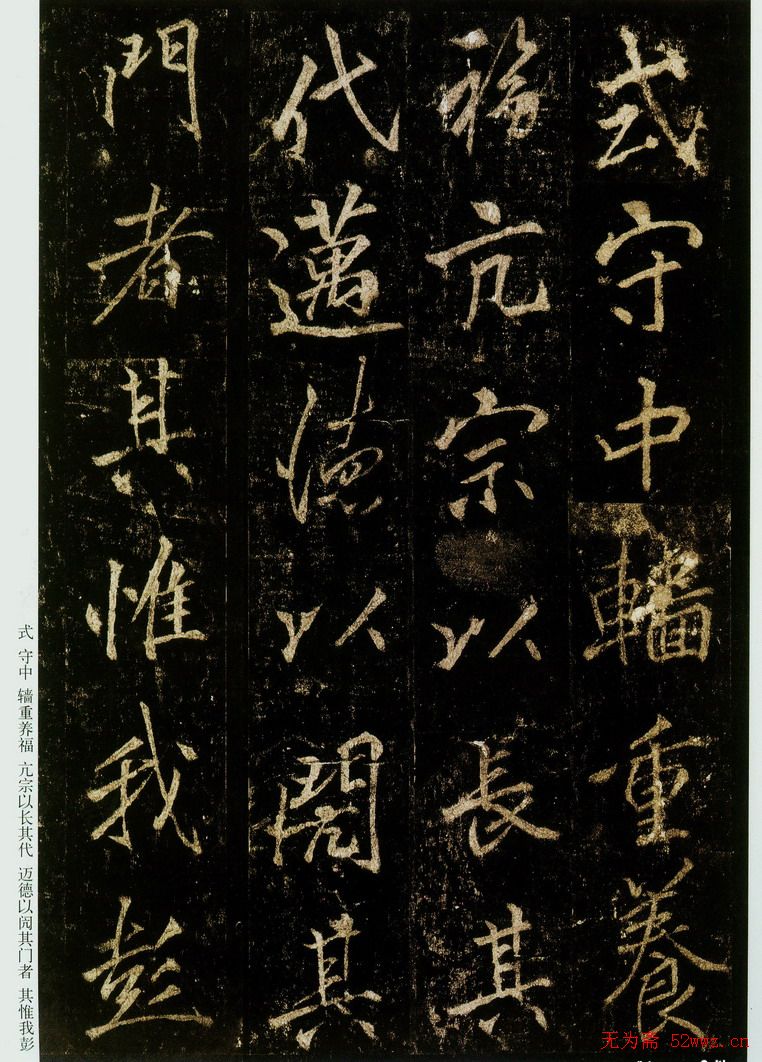 式守中輜重養
福亢宗以長其
代邁德以閱其
門者其惟我彭
式 守中 辎重养福 亢宗以长其代 迈德以阅其门者 其惟我彭
无为斋 52wwz.cn